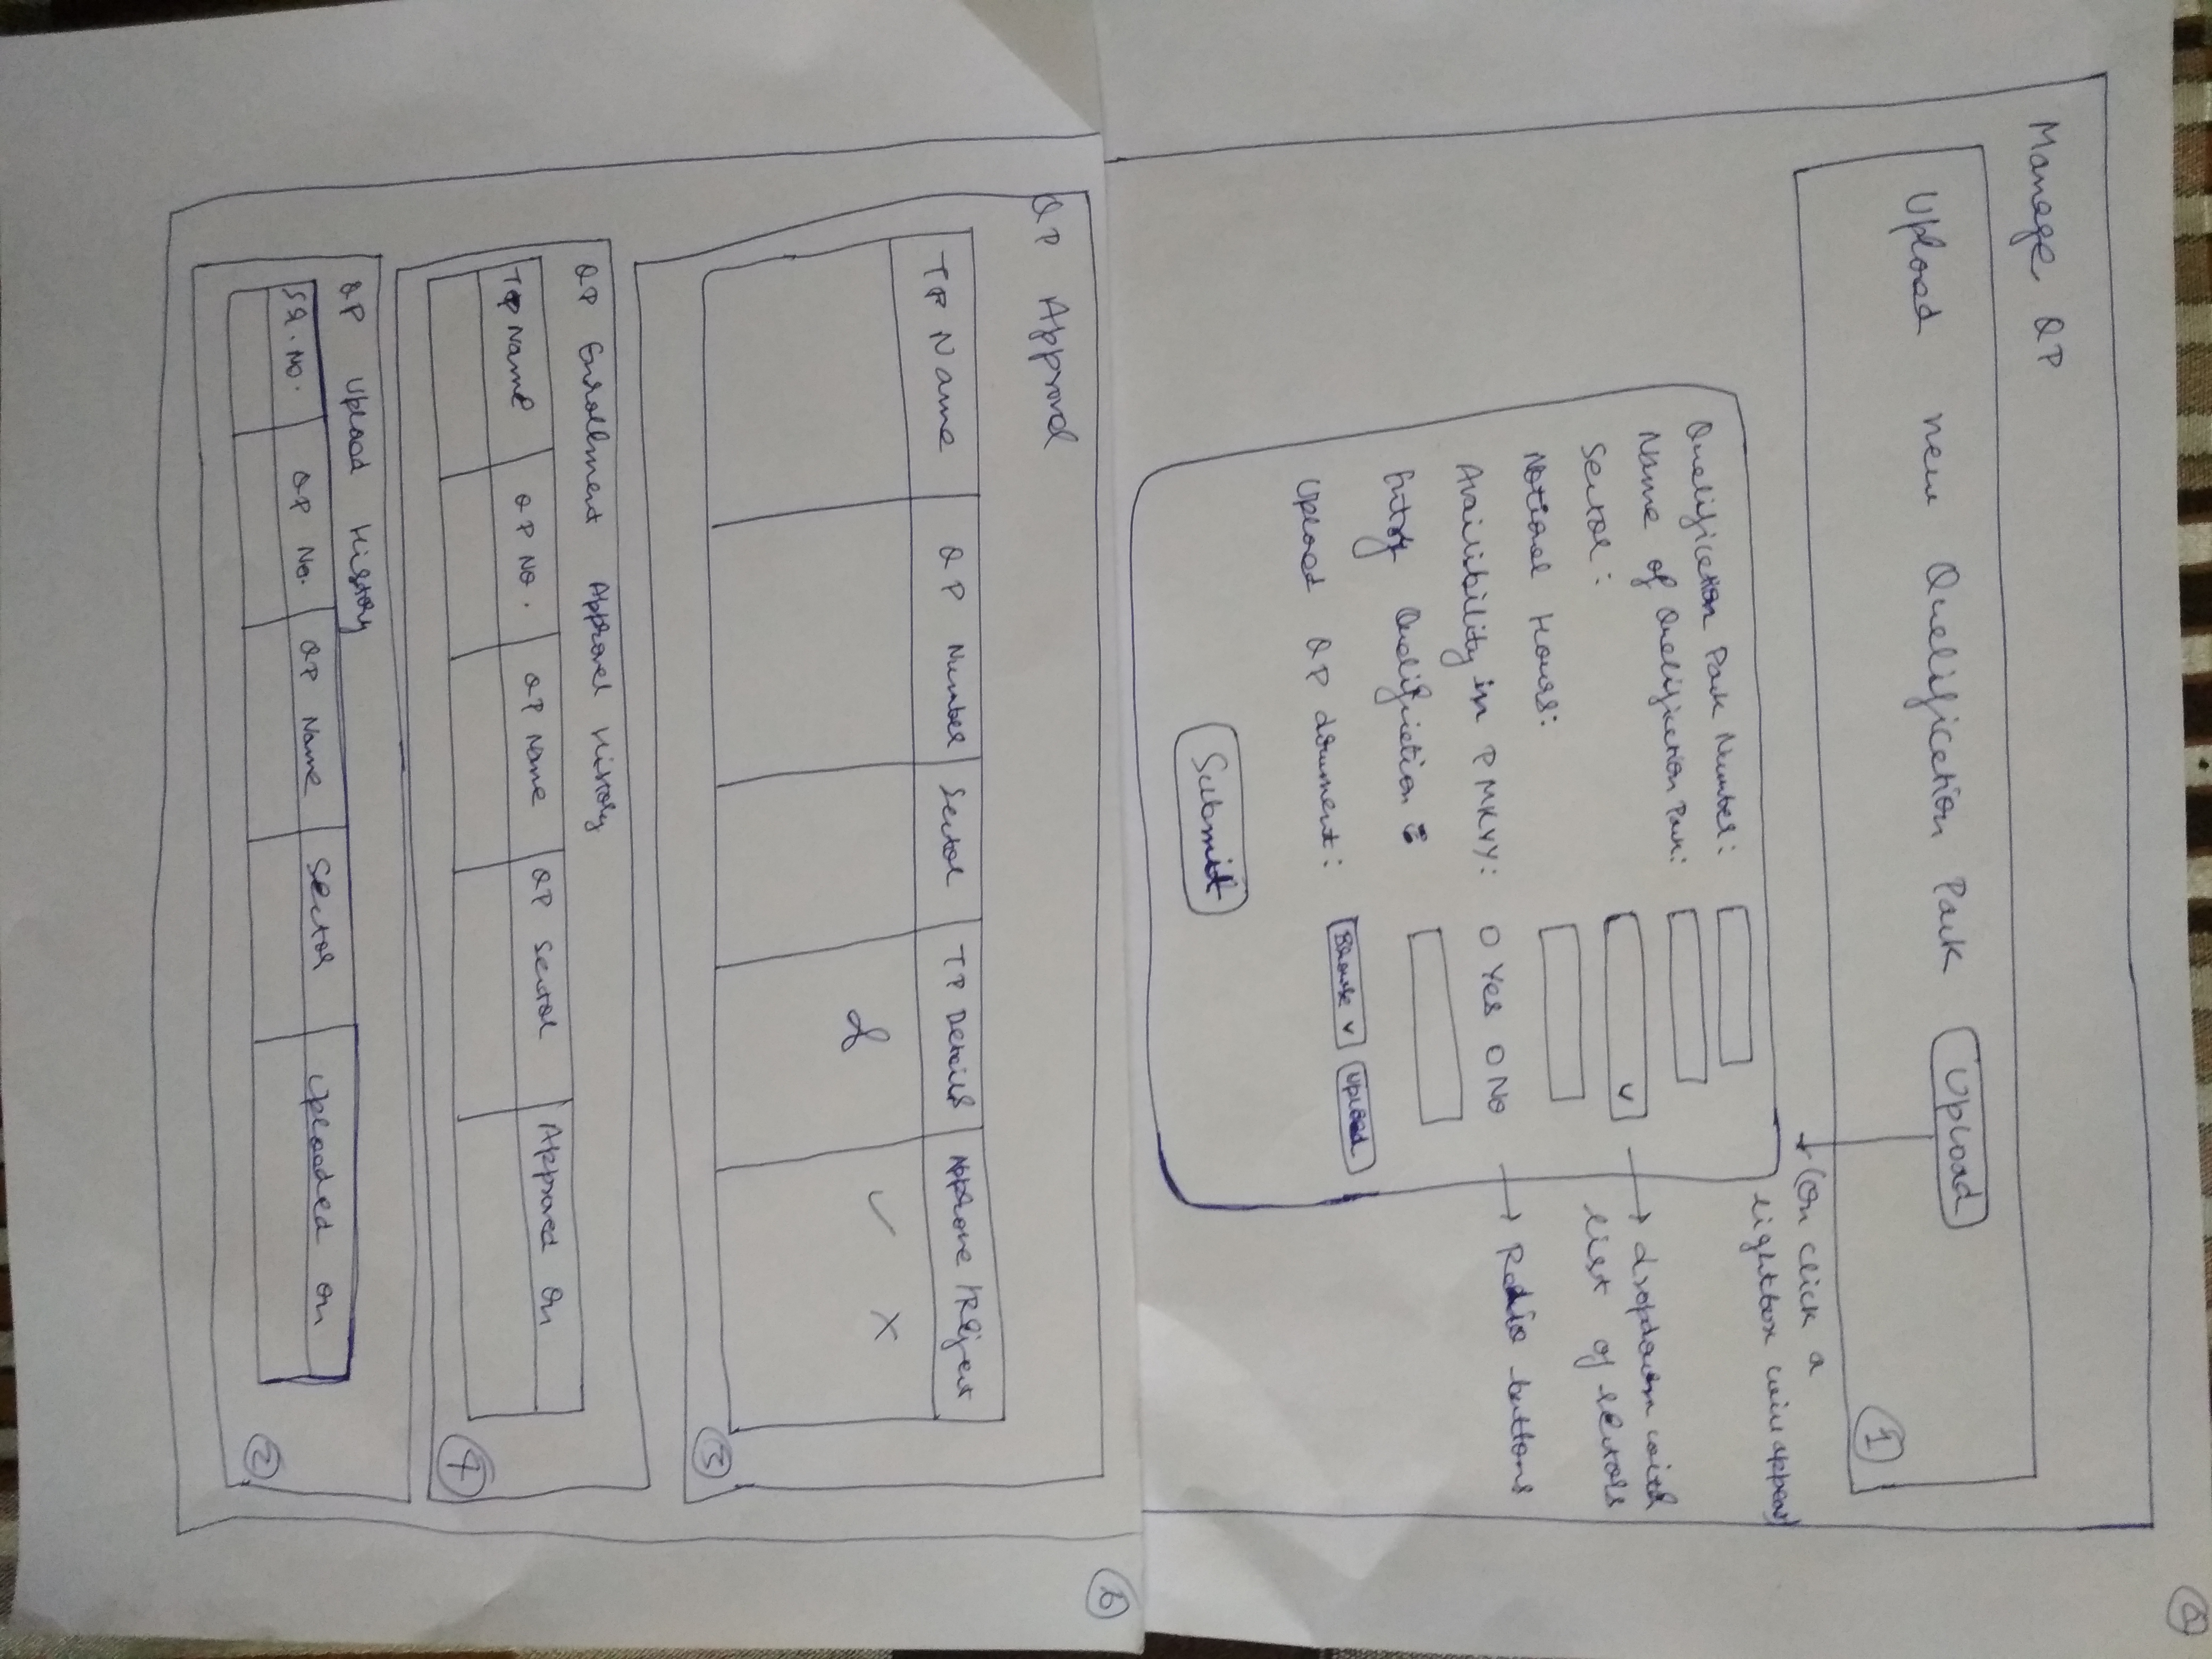 a
Manage QP
Upload new Qualification Pack Upload
1
(On click a
lightbox will appear)
Qualification Pack Number:
Name of Qualification Pack:
Sector: → dropdown with
list of sectors
Notional Hours:
Availibility in PMKVY: O Yes O No → Radio buttons
Entry Qualification :
Upload QP document: Browse v Upload
Submit
b
QP Approval
TP Name QP Number Sector TP Details Approve / Reject
✓ X
3
QP Enrollment Approval History
TP Name QP No. QP Name QP Sector Approved On
4
QP Upload History
SR. No. QP No. QP Name Sector Uploaded On
2